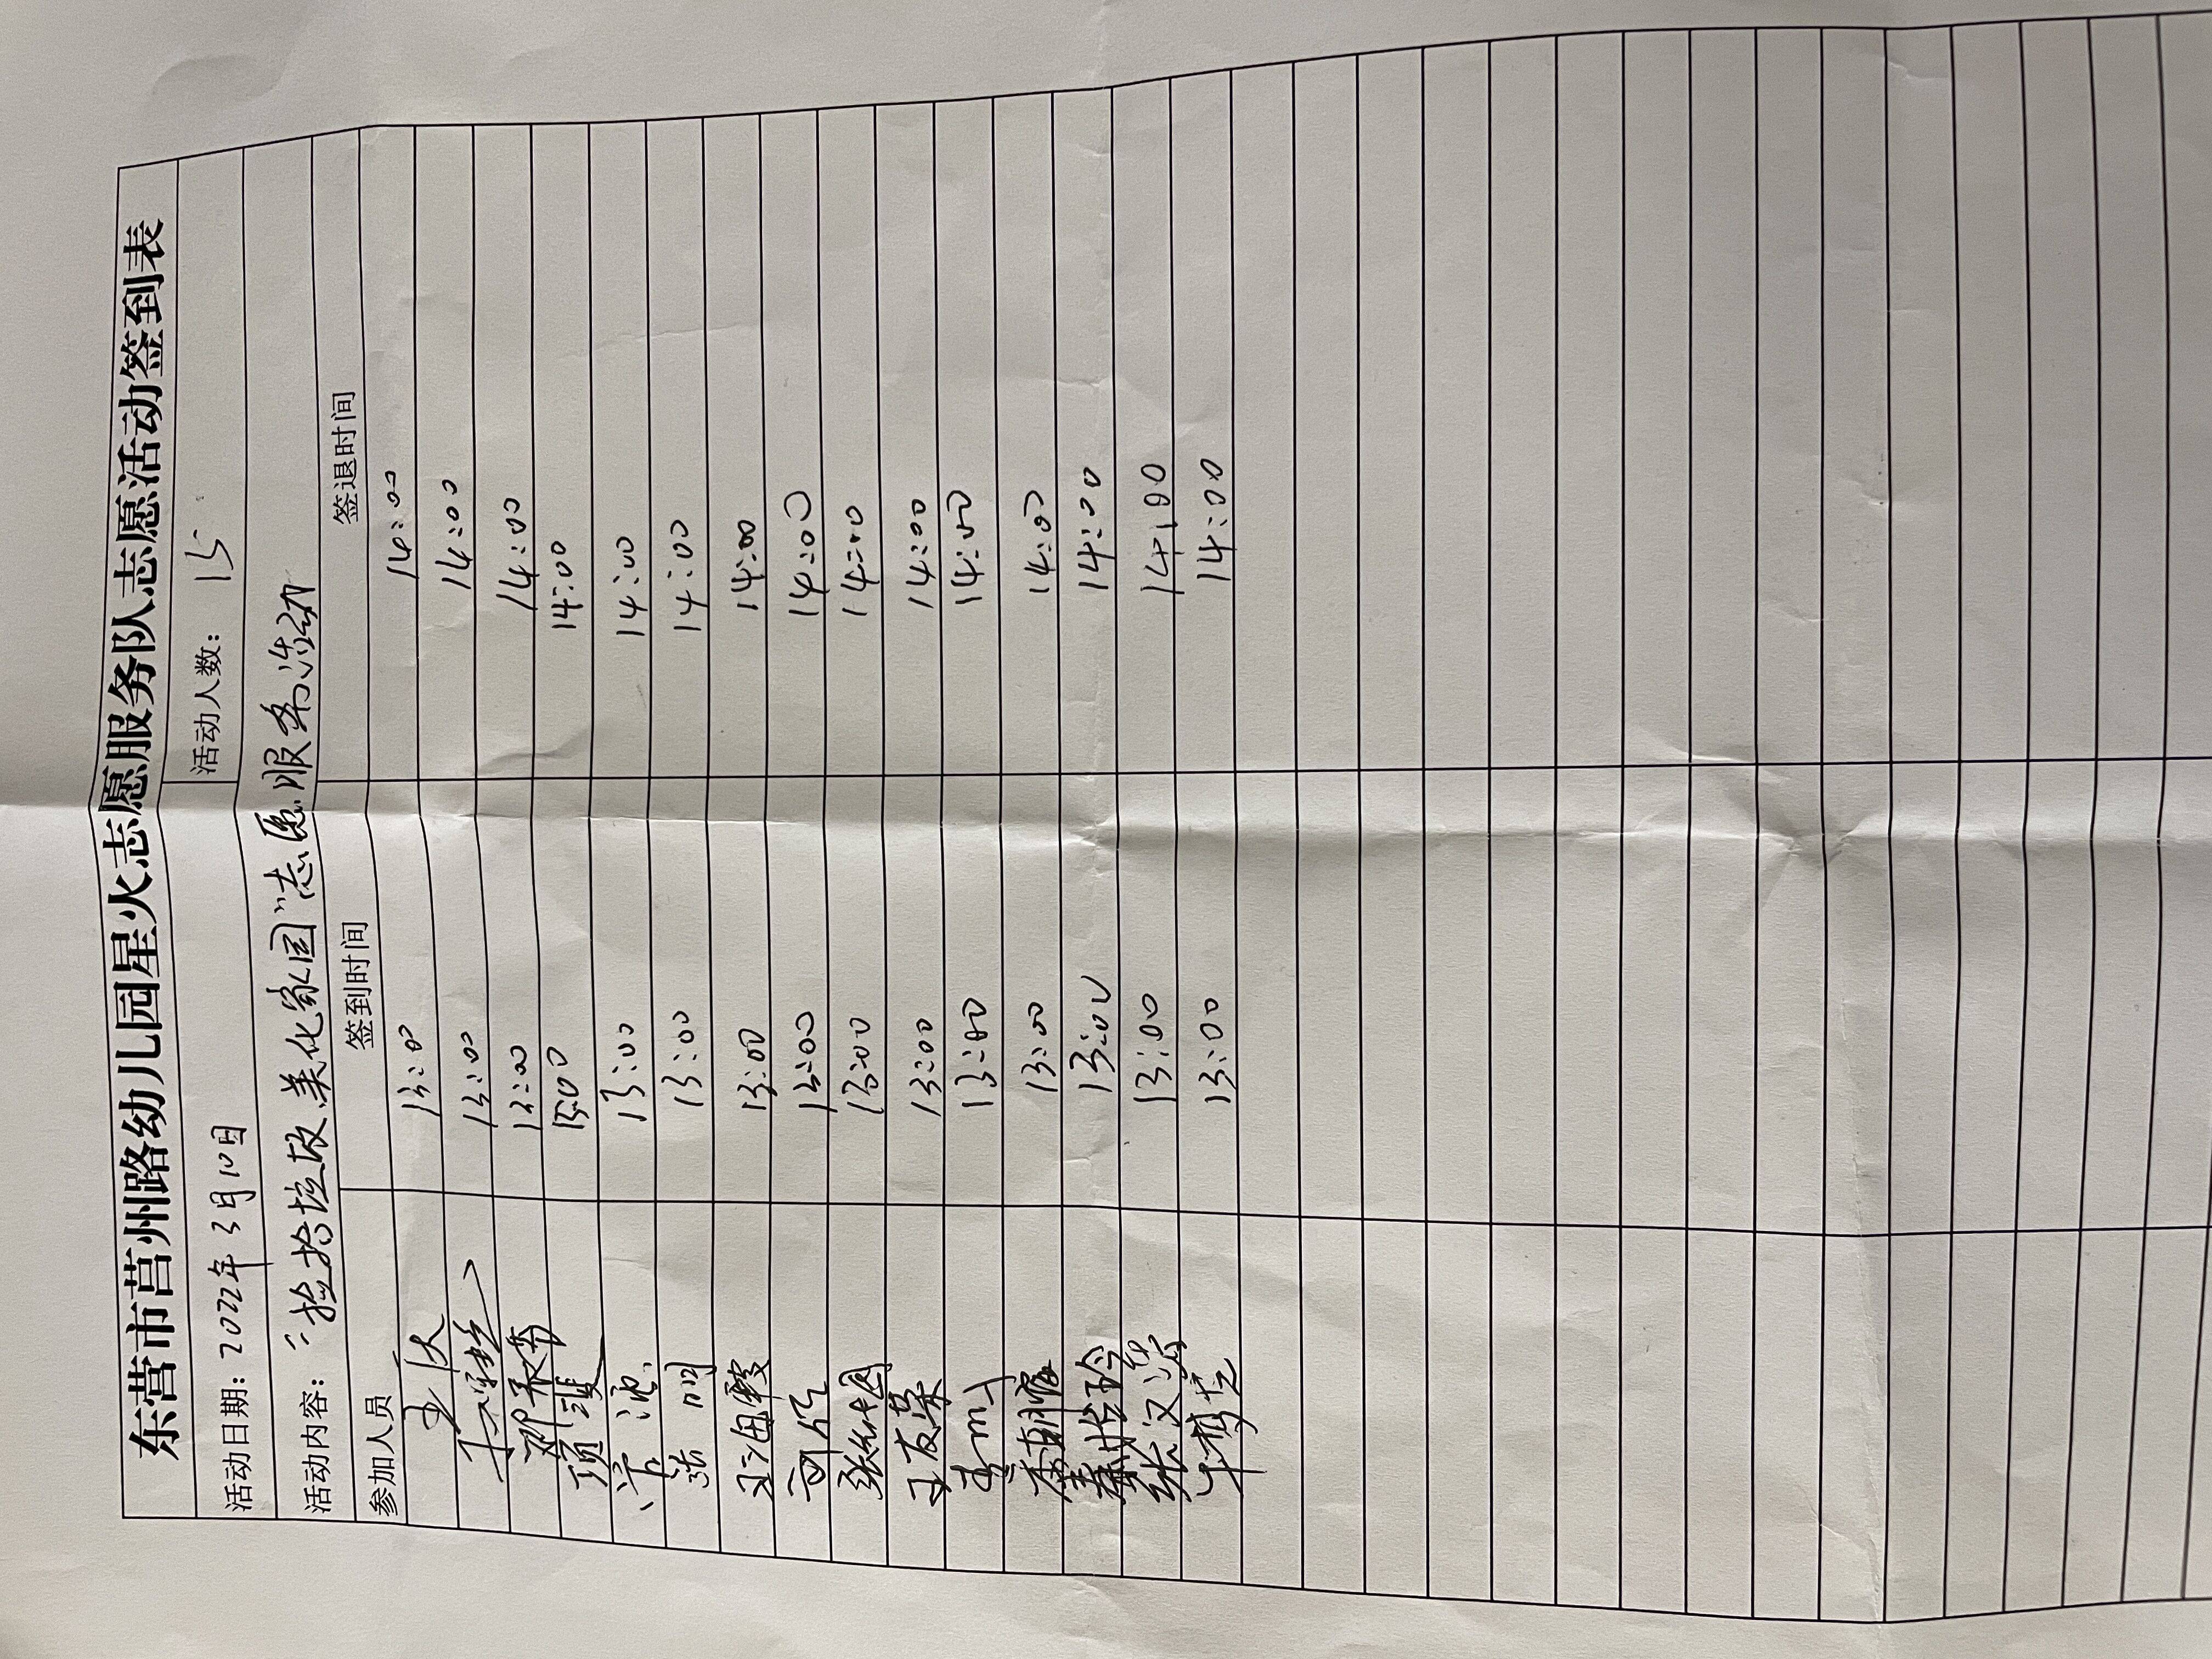 东营市莒州路幼儿园星火志愿服务队志愿活动签到表
活动日期：2022年3月10日 活动人数：15
活动内容：“捡拾垃圾美化家园”志愿服务活动
参加人员 签到时间 签退时间
13:00 14:00
13:00 14:00
13:00 14:00
13:00 14:00
13:00 14:00
张 13:00 14:00
王海霞 13:00 14:00
13:00 14:00
张 13:00 14:00
王友荣 13:00 14:00
13:00 14:00
李 13:00 14:00
秦怡玲 13:00 14:00
张汉 13:00 14:00
13:00 14:00